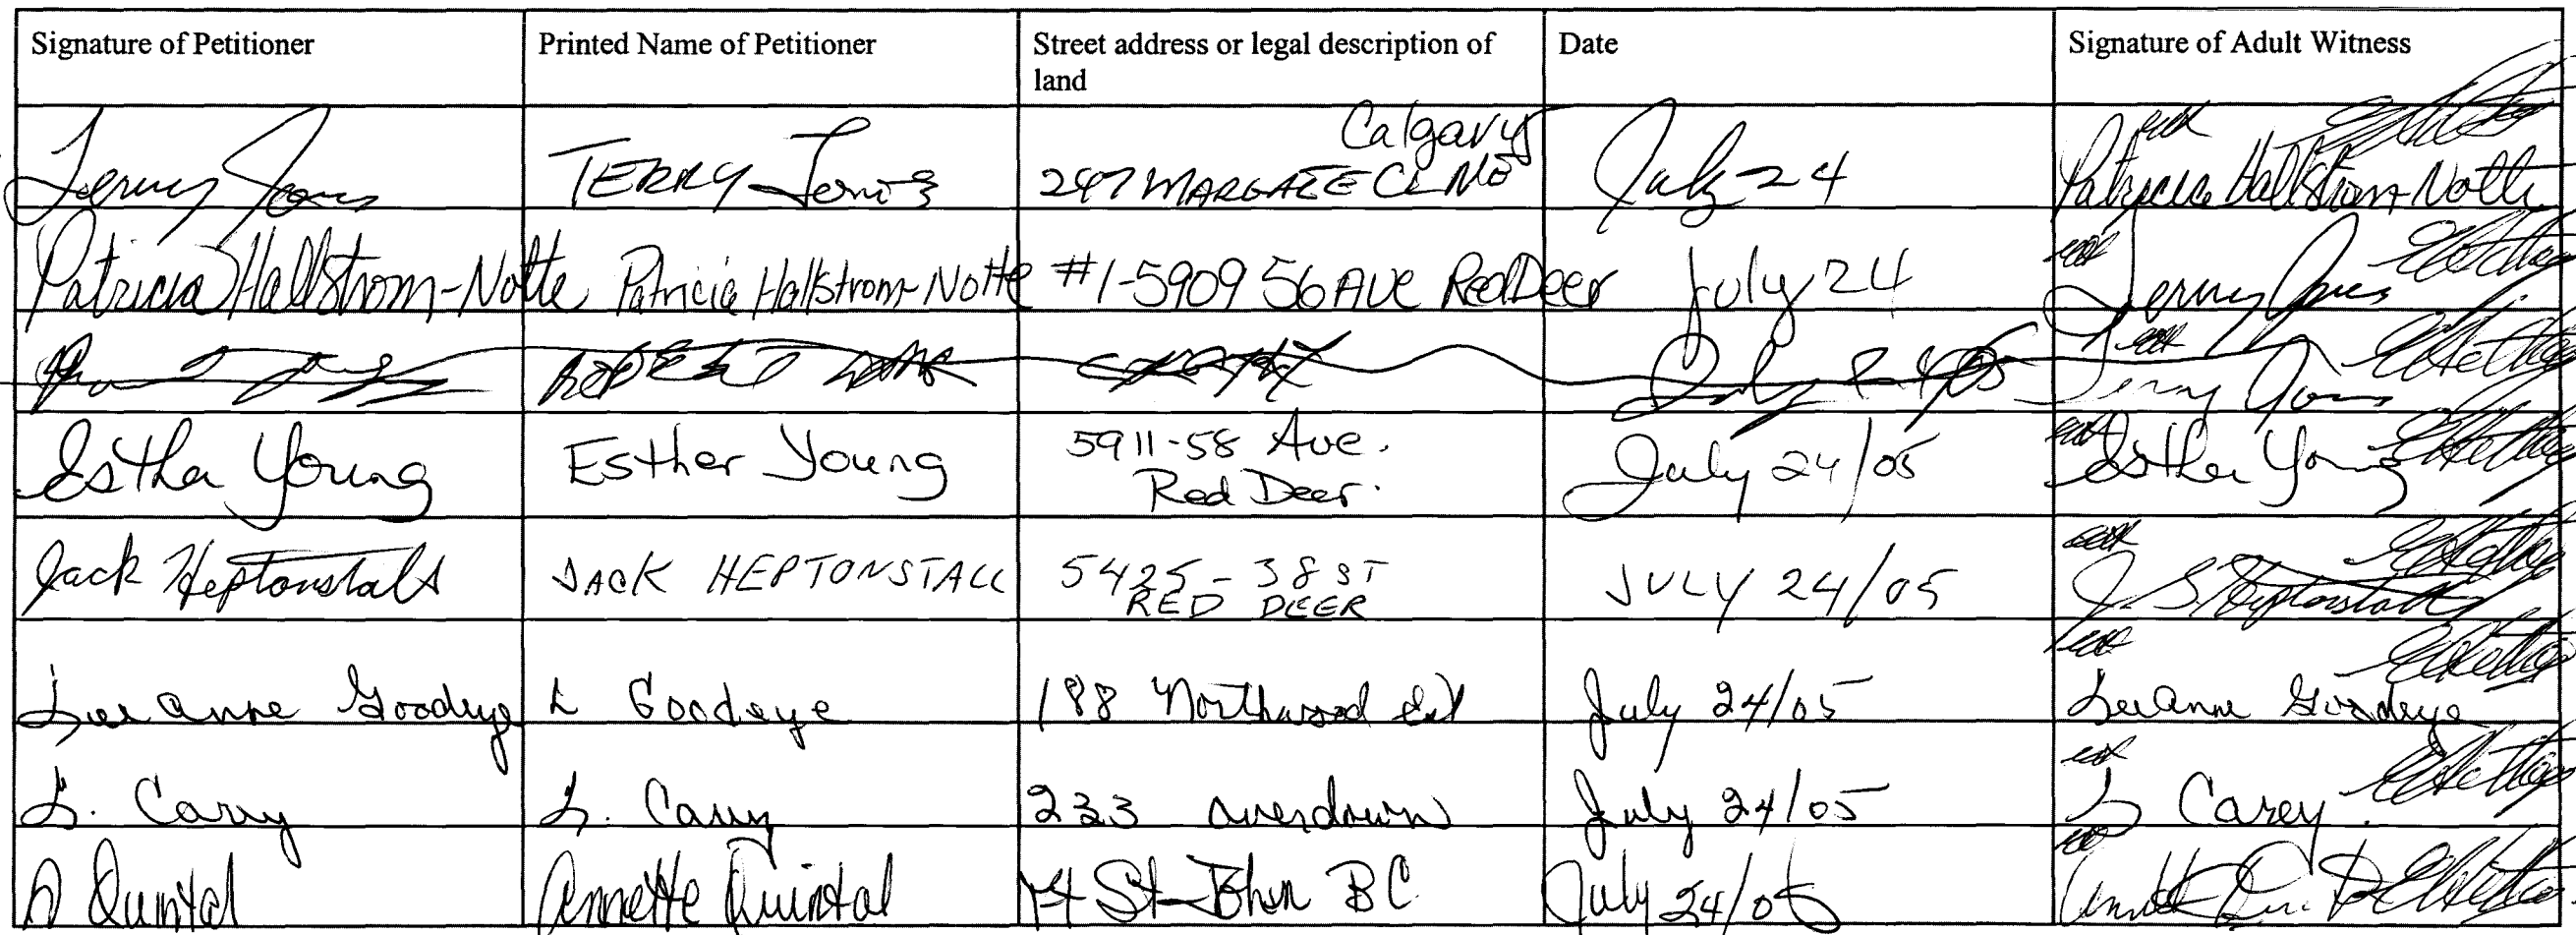 Signature of Petitioner
Printed Name of Petitioner
Street address or legal description of
land
Date
Signature of Adult Witness
Terry Jones
TERRY Jones
Calgary
247 MARGATE CL NE
July 24
Patricia Hallstrom-Notte
Patricia Hallstrom-Notte
Patricia Hallstrom-Notte
#1-5909 56 AVE Red Deer
July 24
Terry Jones
ROBERT
July 24/05
Terry Jones
Esther Young
Esther Young
5911-58 Ave.
Red Deer.
July 24/05
Esther Young
Jack Heptonstall
JACK HEPTONSTALL
5425 - 38 ST
RED DEER
JULY 24/05
J. S. Heptonstall
Lee anne Goodeye
L Goodeye
188 Northwood
July 24/05
LeeAnne Goodeye
L. Carey
L. Carey
233 overdown
July 24/05
L Carey
A Quintal
Annette Quintal
Ft St John BC
July 24/05
Annette